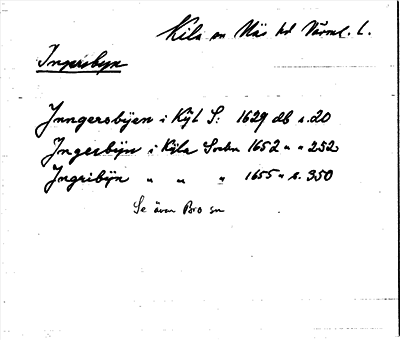 Kila sn Näs hd Värml. L.
Ingribyn
Inngersbÿen i Kÿl S: 1629 db s. 20
Ingesbÿn i Kÿla Sochn 1652 " " 252
Ingribÿn " " " 1655 " s. 350
Se även Bro sn